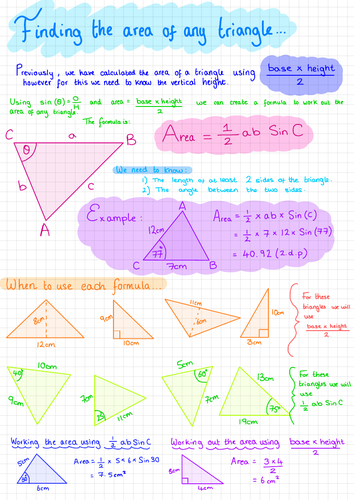 Finding the area of any triangle...
Previously, we have calculated the area of a triangle using
however for this we need to know the vertical height.
base x height
2
Using sin(θ)=O/H and area = base x height/2 we can create a formula to work out the
area of any triangle.
The formula is:
C a B
θ
b c
A
Area = 1/2 ab Sin C
We need to know:
1) The length of at least 2 sides of the triangle.
2) The angle between the two sides.
Example:
A
12cm
77°
C 7cm B
Area = 1/2 x ab x Sin(c)
= 1/2 x 7 x 12 x Sin (77)
= 40.92 (2.d.p)
When to use each formula...
8cm
12cm
9cm
10cm
11cm
6cm
10cm
3cm
For these
triangles we will
use
base x height
2
10cm
40°
9cm
7cm
11cm
5cm
60°
7cm
13cm
75°
19cm
For these
triangles we will
use
1/2 ab Sin C
Working the area using 1/2 ab Sin C
5cm
30°
6cm
Area = 1/2 x 5 x 6 x Sin 30
= 7.5cm²
Working out the area using base x height/2
3cm
4cm
Area = 3 x 4/2
= 6cm²